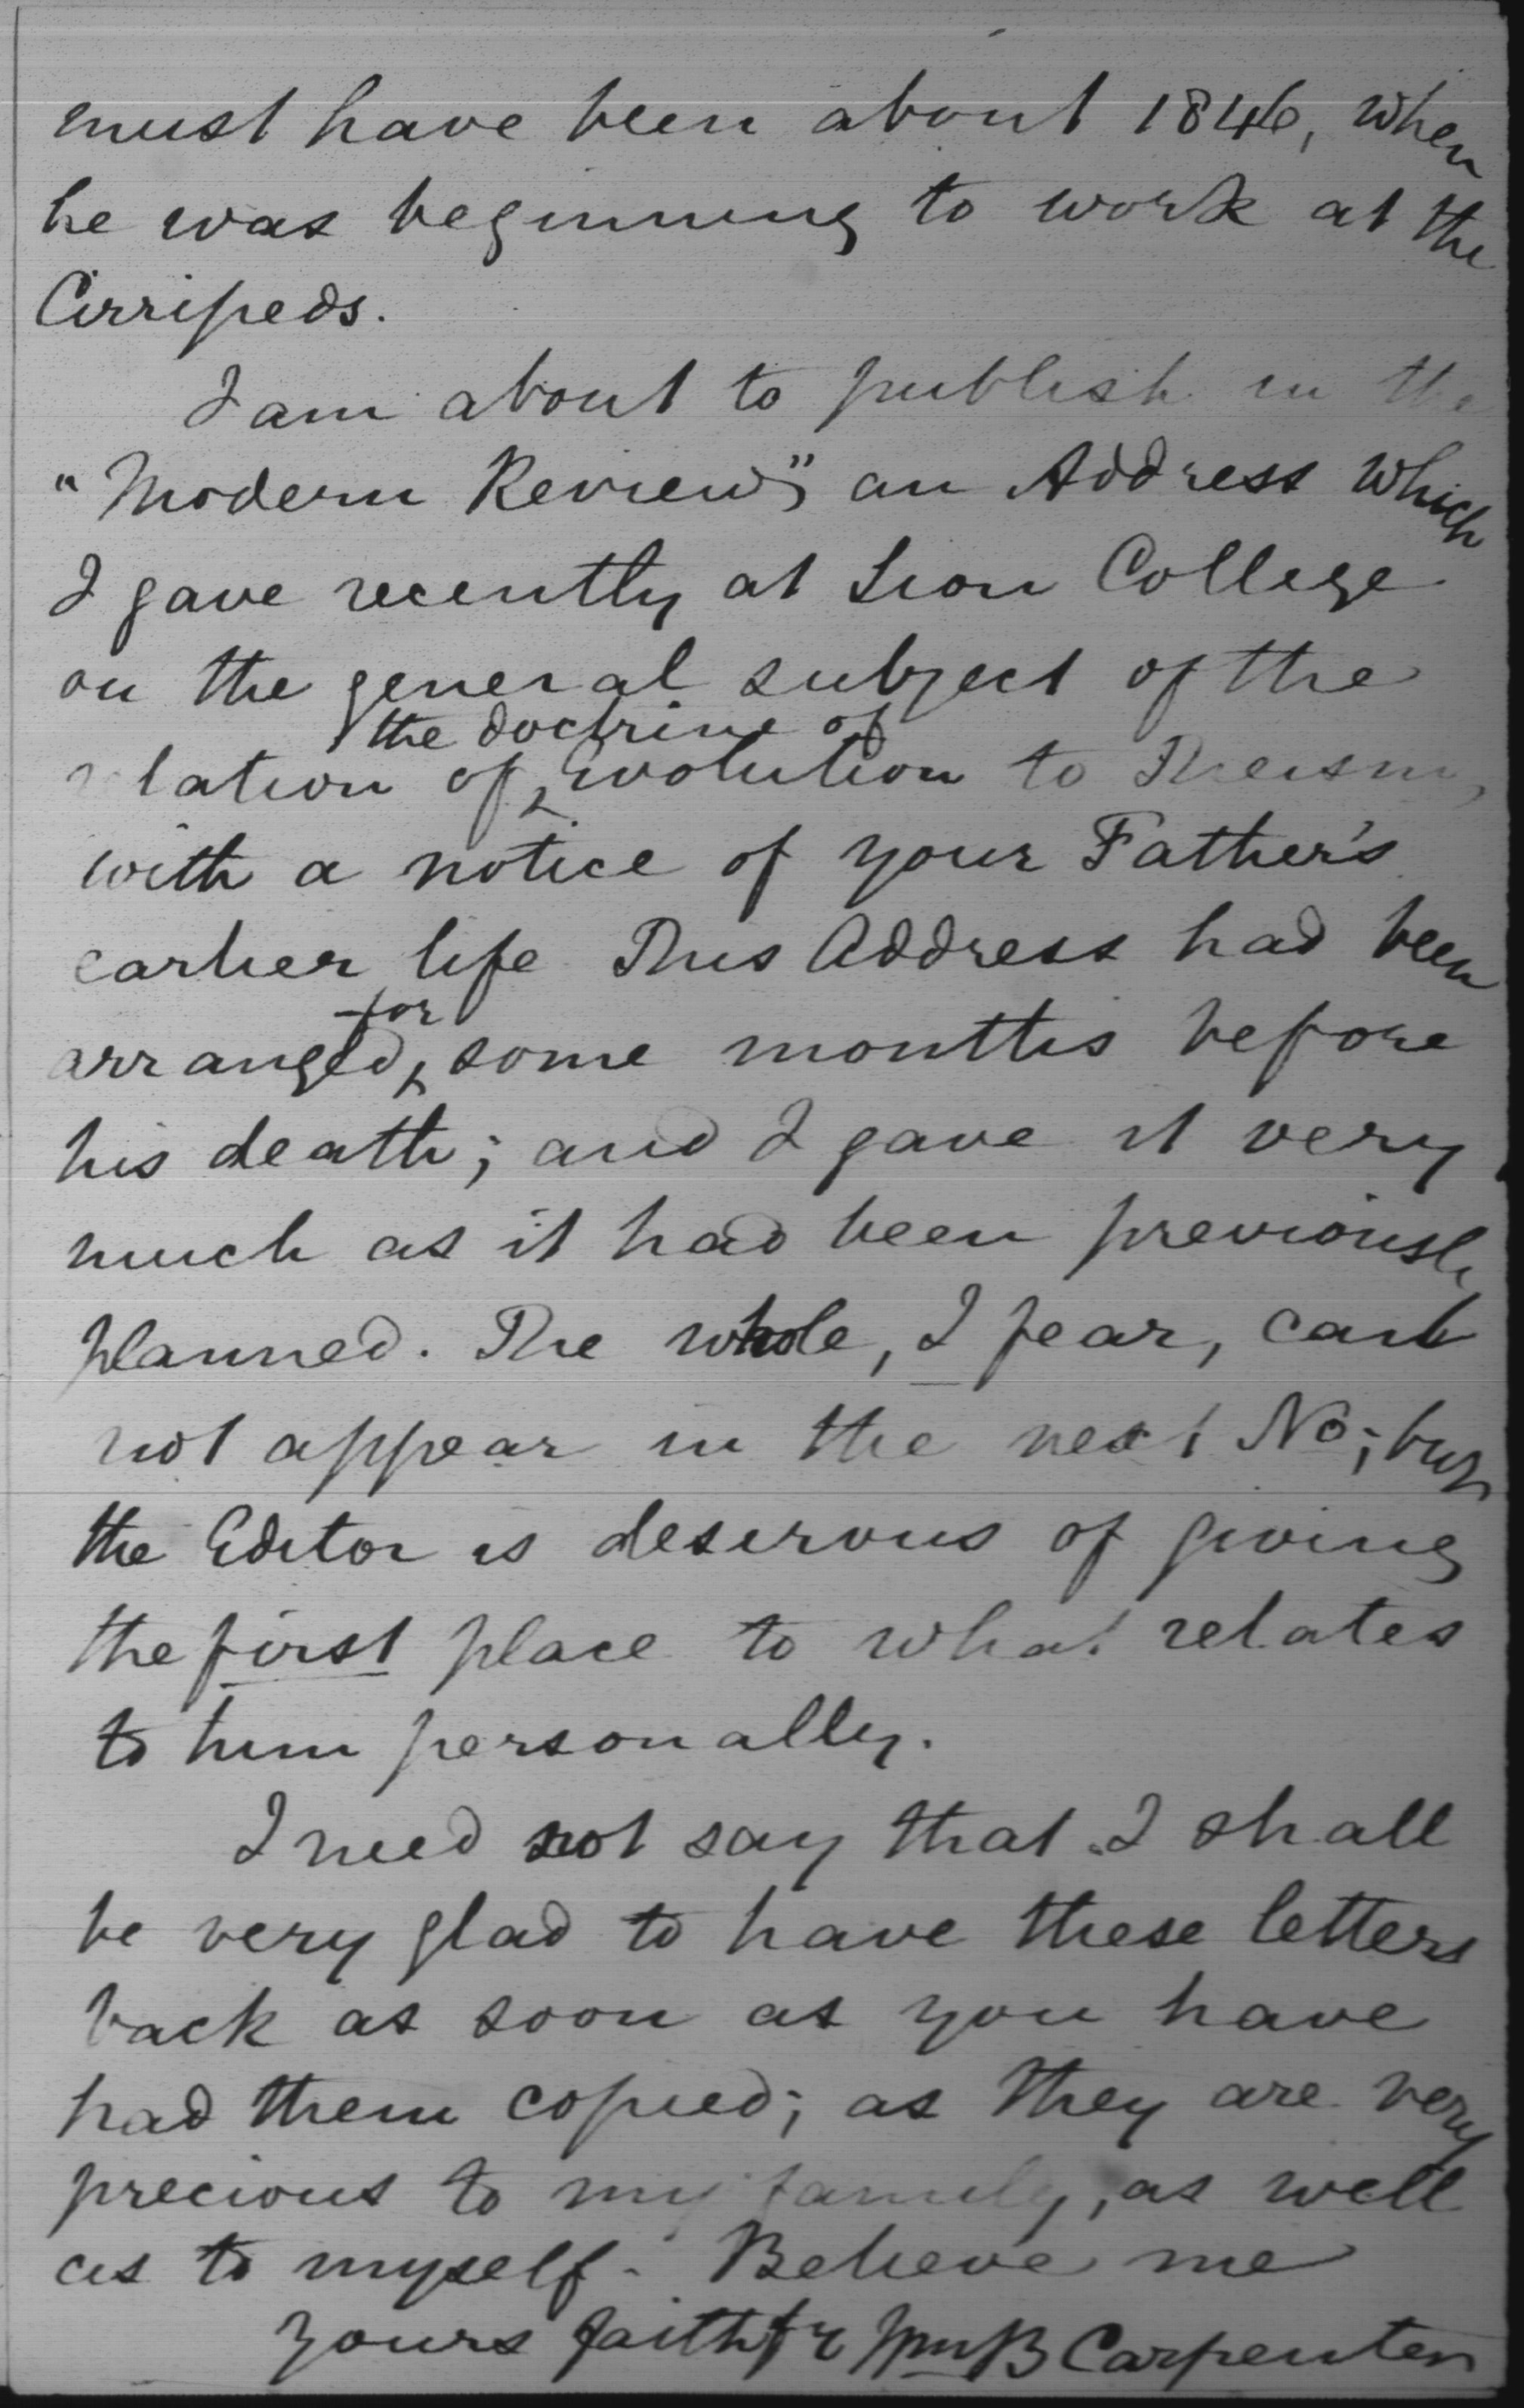 must have been about 1846, when
he was beginning to work at the
Cirripeds.
I am about to publish in the
"Modern Review", an Address which
I gave recently at Sion College
on the general subject of the
the doctrine of
relation of Evolution to Theism,
with a notice of your Father's
earlier life This Address had been
for
arranged, some months before
his death; and I gave it very
much as it had been previously
planned. The whole, I fear, can
not appear in the next No; but
the Editor is desirous of giving
the first place to what relates
to him personally.
I need not say that I shall
be very glad to have these letters
back as soon as you have
had them copied; as they are very
precious to my family, as well
as to myself. Believe me
Yours faithfy Wm B Carpenter